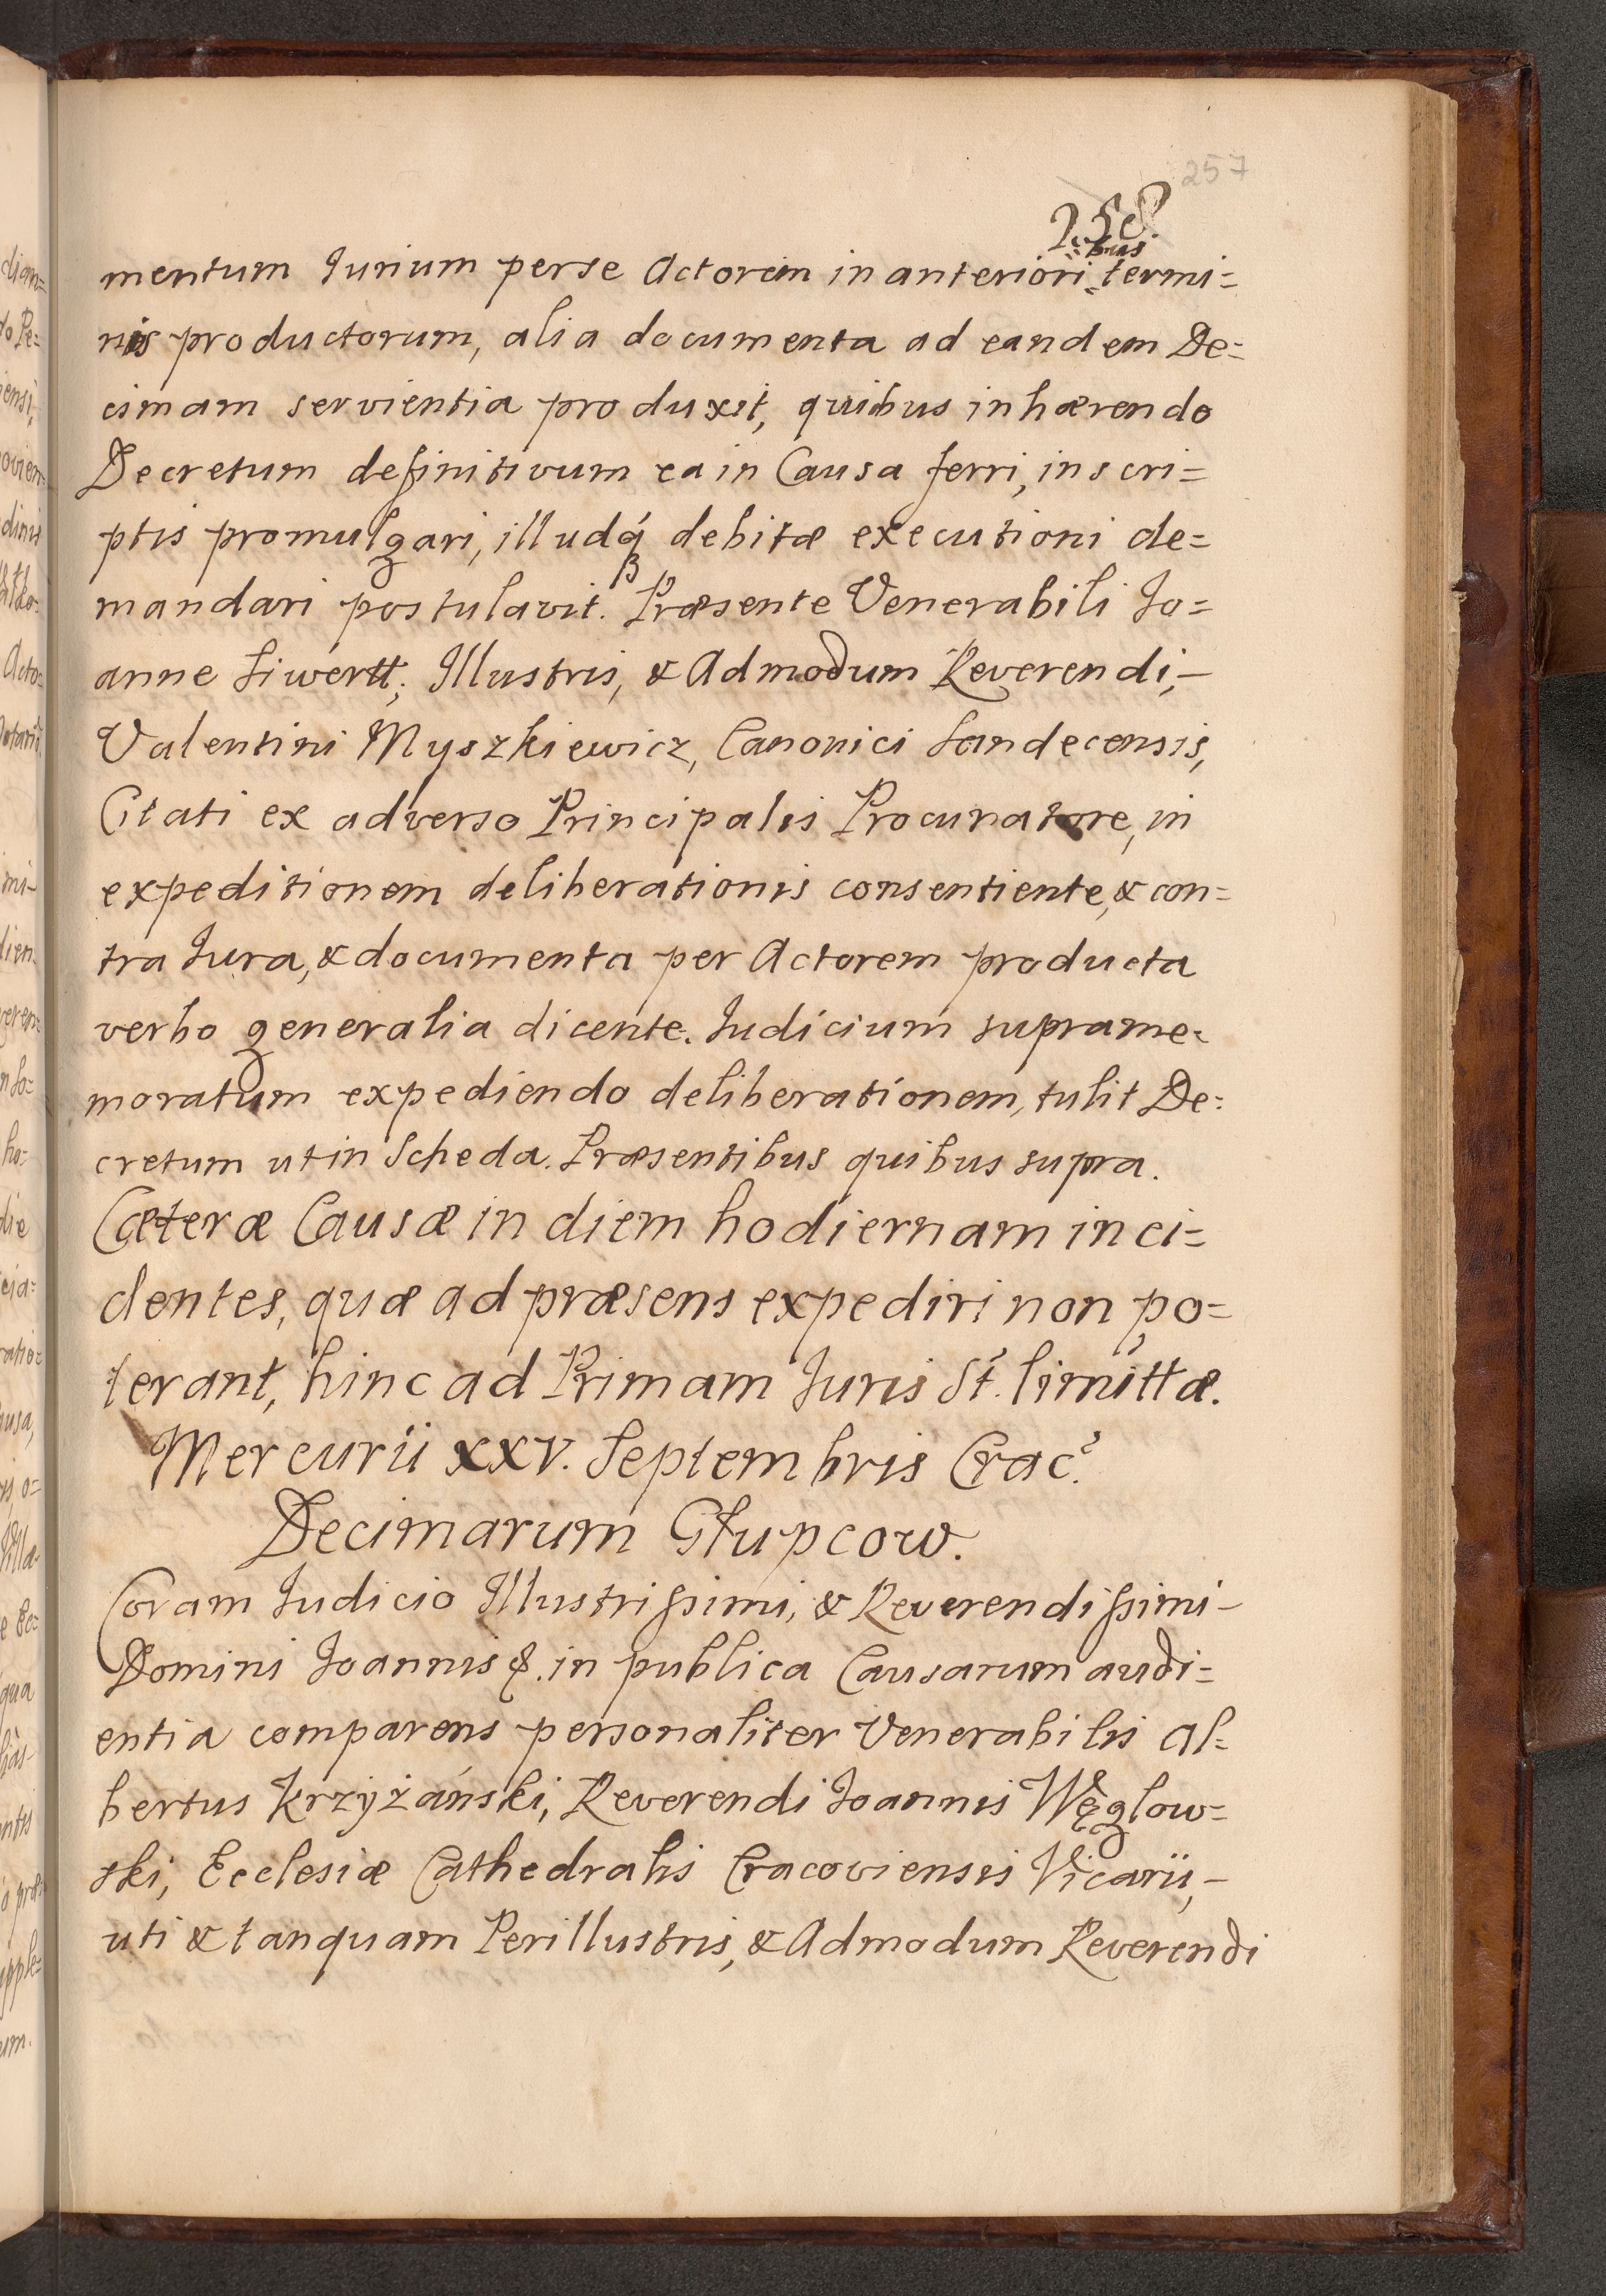 257
258.
mentum Jurium per se Actorem in anteriori=bus termi=
nis productorum, alia documenta ad eandem De=
cimam servientia produxit, quibus inhærendo
Decretum definitivum ea in Causa ferri, in scri=
ptis promulgari, illudq́ꝫ debitæ executioni de=
mandari postulavit. Præsente Venerabili Jo=
anne Siwertt, Illustris, & Admodum Reverendi,–
Valentini Myszkiewicz, Canonici Sandecensis,
Citati ex adverso Principalis Procuratore, in
expeditionem deliberationis consentiente, & con=
tra Jura, & documenta per Actorem producta
verbo generalia dicente. Judicium suprame=
moratum expediendo deliberationem, tulit De=
cretum ut in Scheda. Præsentibus quibus supra.
Cæteræ Causæ in diem hodiernam inci=
dentes, quæ ad præsens expediri non po=
terant, hinc ad Primam Juris St. limittæ.
Mercurii XXV. Septembris Crac.
Decimarum Głupcow.
Coram Judicio Illustrissimi, & Reverendissimi–
Domini Joannis &. in publica Causarum audi=
entia comparens personaliter Venerabilis Al=
bertus Krzyżański, Reverendi Joannis Węglow=
ski, Ecclesiæ Cathedralis Cracoviensis Vicarii,–
uti & tanquam Perillustris, & Admodum Reverendi